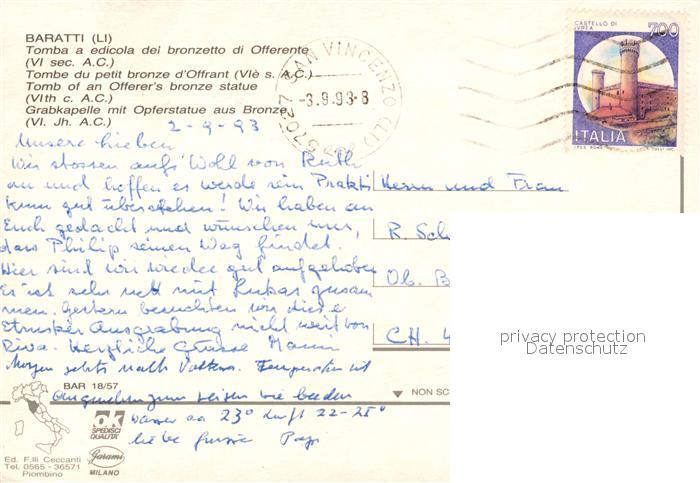 BARATTI (LI)
Tomba a edicola dei bronzetto di Offerente
(VI sec. A.C.)
Tombe du petit bronze d'Offrant (VIè s. A.C.)
Tomb of an Offerer's bronze statue
(VIth c. A.C.)
Grabkapelle mit Opferstatue aus Bronze
(VI. Jh. A.C.)
57027 SAN VINCENZO (LI)
-3.9.93-8
CASTELLO DI
IVREA
700
ITALIA
2-9-93
Unsere lieben
Wir stossen aufs Wohl von Ruth
an und hoffen es werde sein Prakti
kum gut überstehen! Wir haben an
Euch gedacht und wünschen nur,
dass Philip seinen Weg findet.
Hier sind wir wieder gut aufgehoben
Es ist sehr nett mit Lukas zusam
men. Gestern besuchten wir diese
Etrusker Ausgrabung nicht weit von
Riva. Herzliche Grüsse Mami
Morgen gehts nach Volterra. Temperaturen ist
angenehm zum reisen wie baden
Wasser ca 23° Luft 22-25°
liebe Grüsse Paps
Herrn und Frau
R. Sch
Ob. B
CH. 4
privacy protection
Datenschutz
BAR 18/57
NON SC
ok
SPEDISCI
QUALITA'
Garami
MILANO
Ed. F.lli Ceccanti
Tel. 0565 - 36571
Piombino